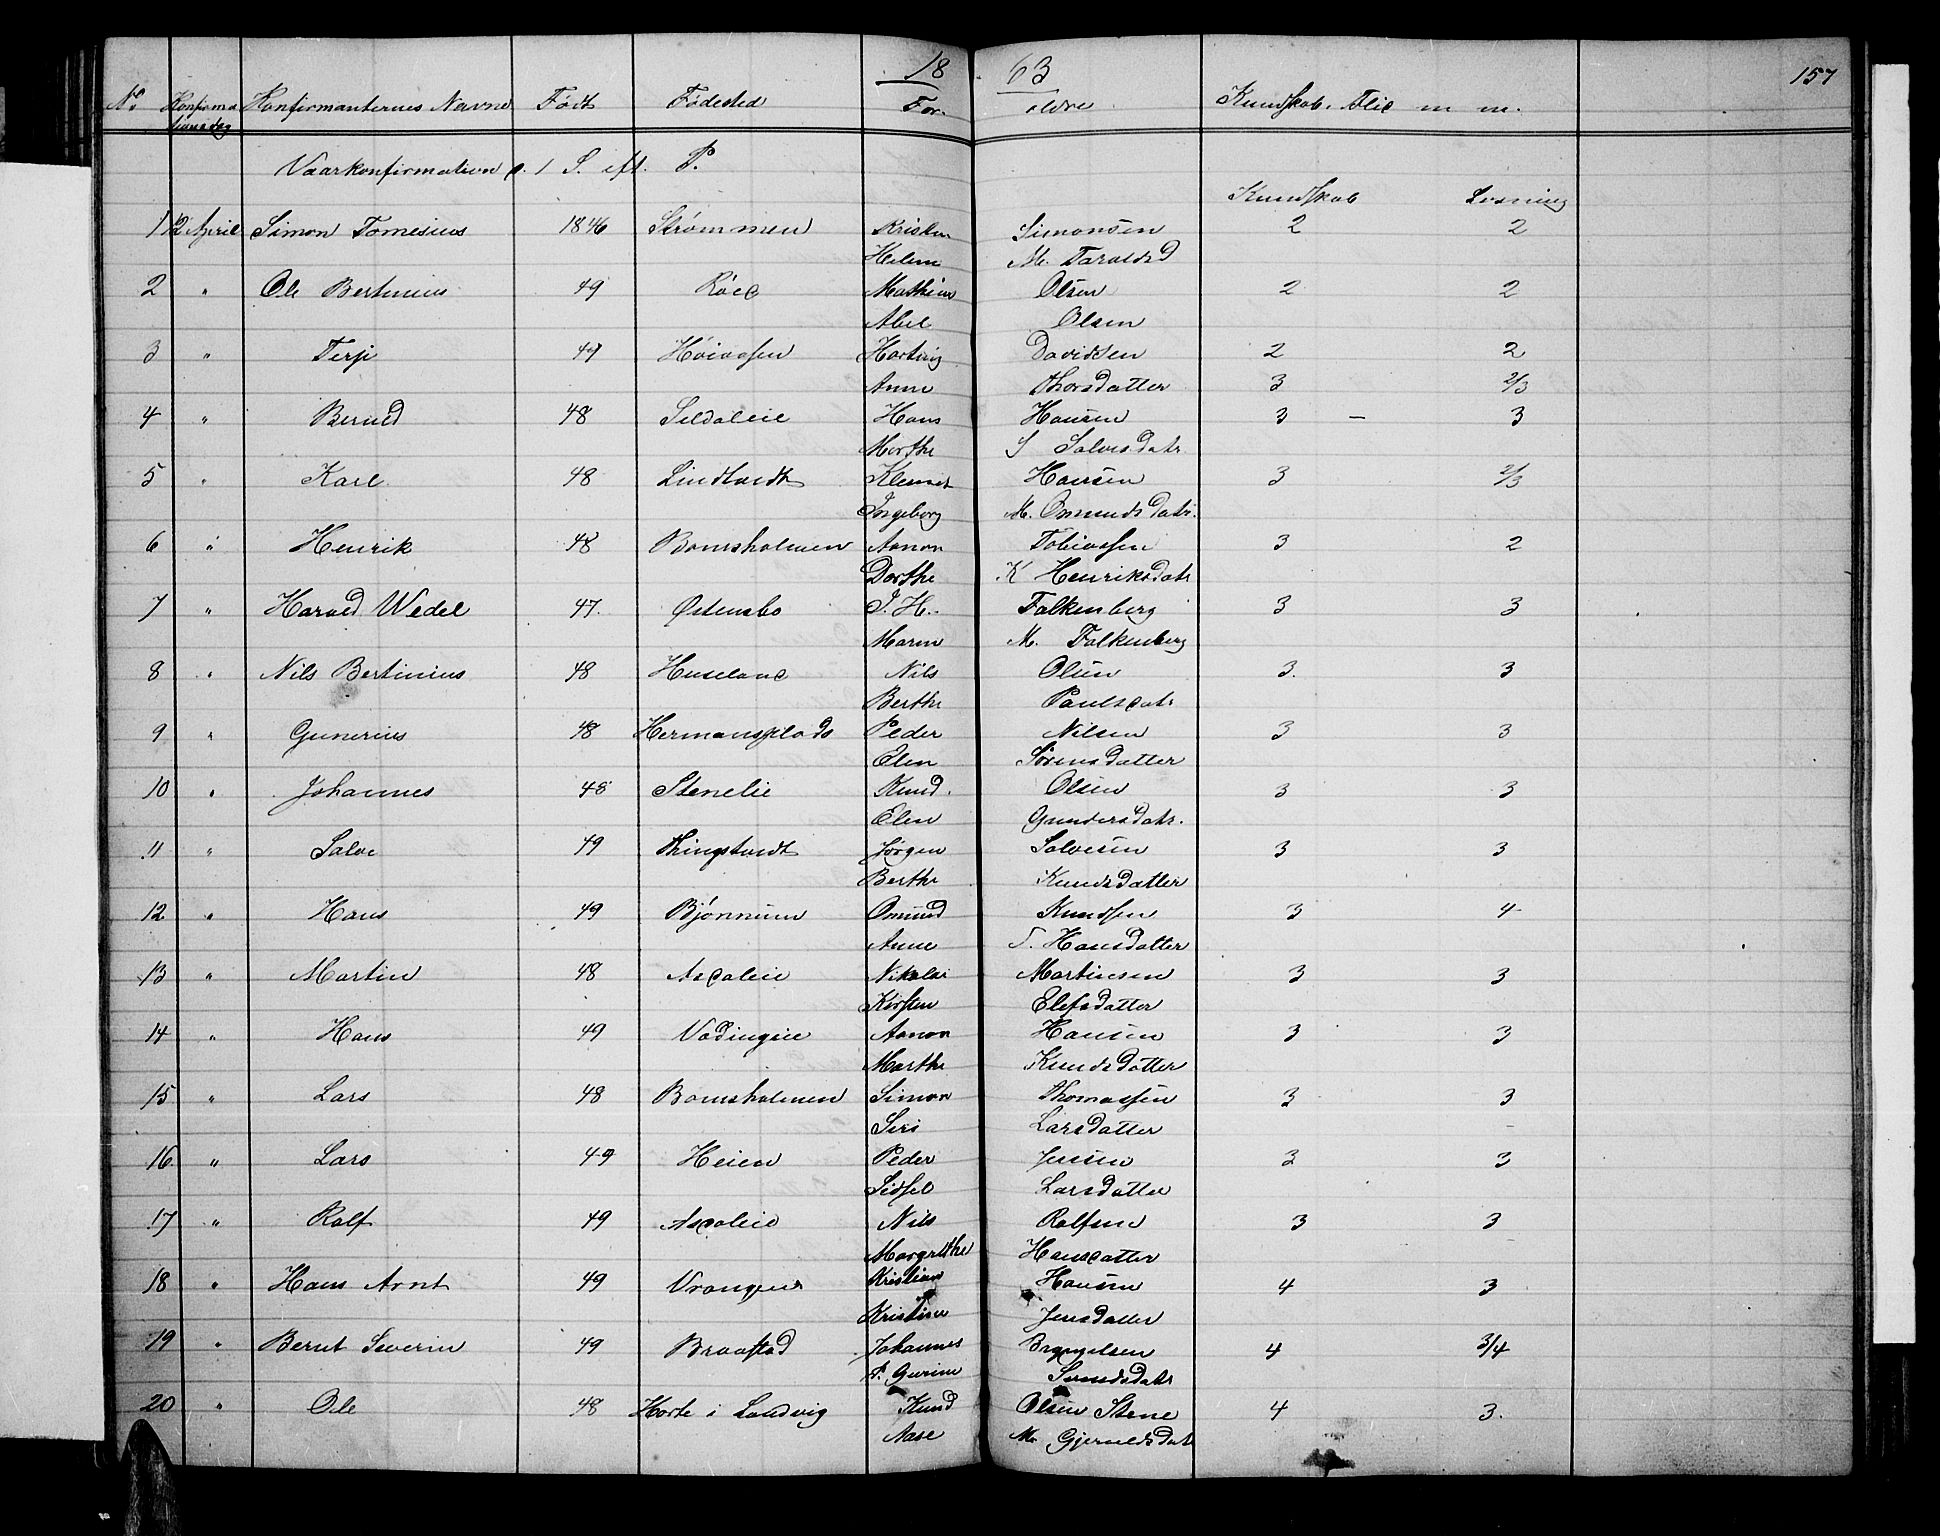 18 63
157
No Konfirma Konfirmanternes Navne Født Fødested For- ældre Kundskab. Flid m m.
tionsdag
Vaarkonfirmation p. 1 S. eft. P.
Kundskab Læsning
1 12 April Simon 1846 Strømmen Kristen Simonsen 2 2
Helene M. Taraldsd
2 " Ole Bertinius 49 Mathias Olsen 2 2
Abel Olsen
3 " Terje 49 Høiaasen Harting Davidsen 2 2
Anne Thorsdatter 3 2/3
4 " Berned 48 Seldaleie Hans Hansen 3 – 3
Marthe S Salvesdatr
5 " Karl 48 Lindtvedt Klemet Hansen 3 2/3
Ingeborg M. Omundsdatr.
6 " Henrik 48 Bomsholmen Aanon Tobiassen 3 2
Dorthe K Henriksdatr
7 " Harald Wedel 47. Østensbo J. H. Falkenberg 3 3
Maren M. Falkenberg
8 " Nils Bertinius 48 Huseland Nils Olsen 3. 3
Berthe Paulsdatr
9 " Gunerius 48 Hermansplads Peder Nilsen 3 3
Elen Sørensdatter
10 " Johannes 48 Stenelie Knud. Olsen 3 3
Elen Gundersdatr.
11 " Salve 49 Thingstvedt Jørgen Salvesen 3 3
Berthe Knudsdatter
12 " Hans 49 Bjønnum Omund Knudsen 3 4
Anne T. Hansdatter
13 " Martin 48 Asdaleie Nikolai Martinsen 3 3
Kirsten Elefsdatter
14 " Hans 49 Aanon Hansen 3 3
Marthe Knudsdatter
15 " Lars 48 Bomsholmen Simon Thomassen 3 3
Siri Larsdatter
16 " Lars 49 Heien Peder Jensen 3 3
Sidsel Larsdatter
17 " Rolf 49 Asdaleie Nils Rolfsen 3 3
Margrethe Hansdatter
18 " Hans Arnt 49 Vrangen Kristian Hansen 4 3
Kristine Jensdatter
19 " Bernt Severin 49 Braastad Johannes Bryngelsen 4 3/4
Gurine
20 " Ole 48 Horte i Landvig Knud Olsen Stene 4 3.
Aase M. Gjeruldsdatr